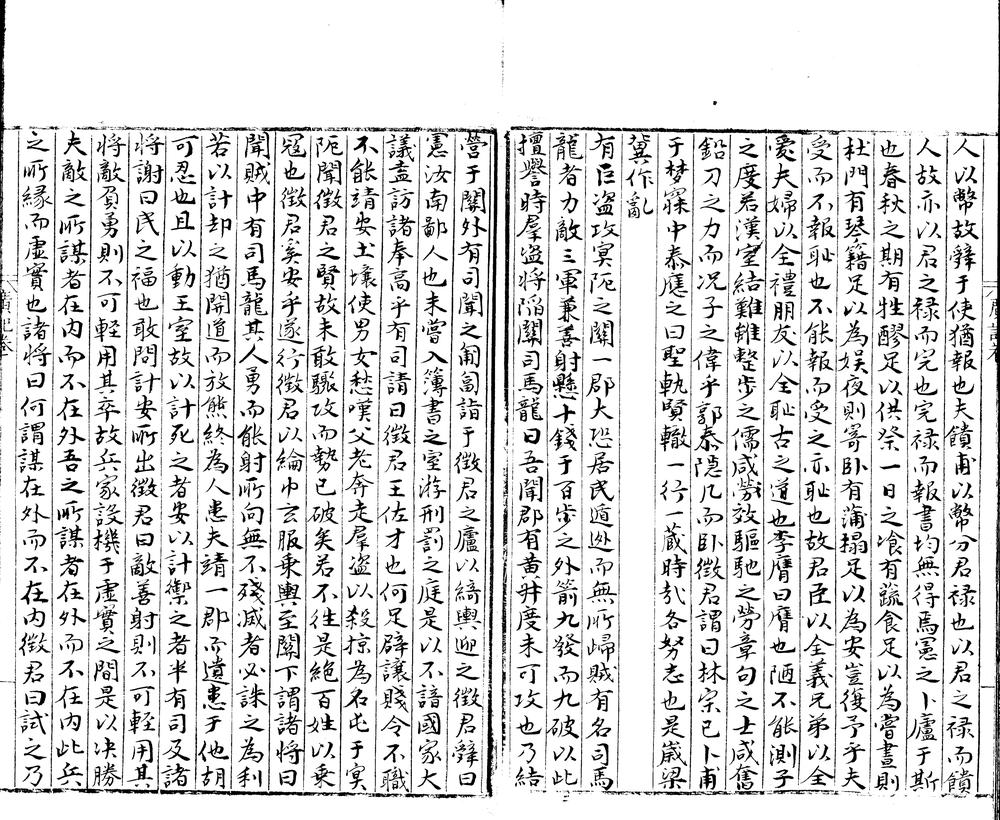 人以幣故辭于使猶報也夫饋甫以幣分君祿也以君之祿而饋
人故亦以君之祿而完也完祿而報書均無得焉憲之卜廬于斯
也春秋之期有牲醪足以供祭一日之飡有蔬食足以為嘗晝則
杜門有琴籍足以為娛夜則寄臥有蒲榻足以為安豈復予乎夫
受而不報恥也不能報而受之亦恥也故君臣以全義兄弟以全
愛夫婦以全禮朋友以全恥古之道也李膺曰膺也陋不能測子
之度若漢室結難雖整步之儒咸勞效驅馳之勞章句之士咸奮
鉛刀之力而况子之偉乎郭泰隱几而臥徵君謂曰林宗已卜甫
于夢寐中泰應之曰聖軌賢轍一行一蔵時哉各努志也是歲梁
冀作亂
有巨盜攻冥阨之關一郡大恐居民遁迯而無所歸賊有名司馬
龍者力敵三軍兼善射懸十錢于百步之外箭九發而九破以此
擅譽時羣盜將陷關司馬龍曰吾聞郡有黃叔度未可攻也乃結
營于關外有司聞之匍匐詣于徵君之廬以綺輿迎之徵君辭曰
憲汝南鄙人也未嘗入簿書之室游刑罰之庭是以不諳國家大
議盍訪諸奉高乎有司請曰徵君王佐才也何足辟讓賤令不職
不能靖安土壤使男女愁嘆父老奔走羣盜以殺掠為名屯于冥
阨聞徵君之賢故未敢驟攻而勢已破矣若不往是絕百姓以乘
冦也徵君奚安乎遂行徵君以綸巾玄服乘輿至關下謂諸將曰
聞賊中有司馬龍其人勇而能射所向無不殘滅者必誅之為利
若以計却之猶開道而放熊終為人患夫靖一郡而遺患于他胡
可忍也且以動王室故以計死之者安以計禦之者半有司及諸
將謝曰民之福也敢問計安所出徵君曰敵善射則不可輕用其
將敵負勇則不可輕用其卒故兵家設機于虛實之間是以决勝
夫敵之所謀者在內而不在外吾之所謀者在外而不在內此兵
之所緣而虛實也諸將曰何謂謀在外而不在內徵君曰試之乃